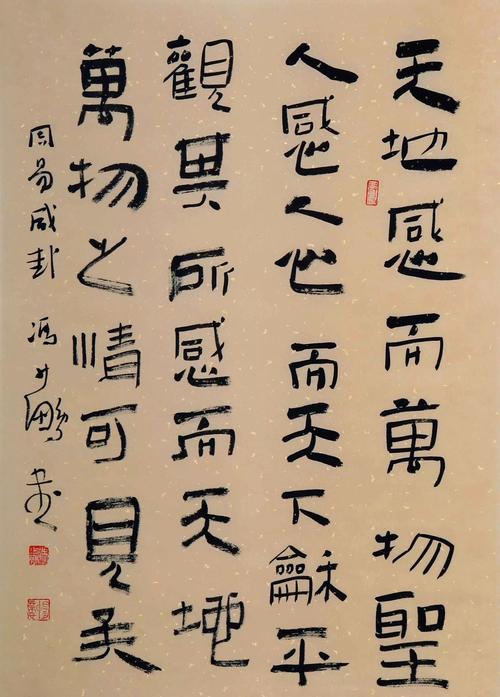 天地感而萬物聖
人感人心而天下龢平
觀其所感而天地
萬物之情可見矣
周易咸卦 馮 鵬 書